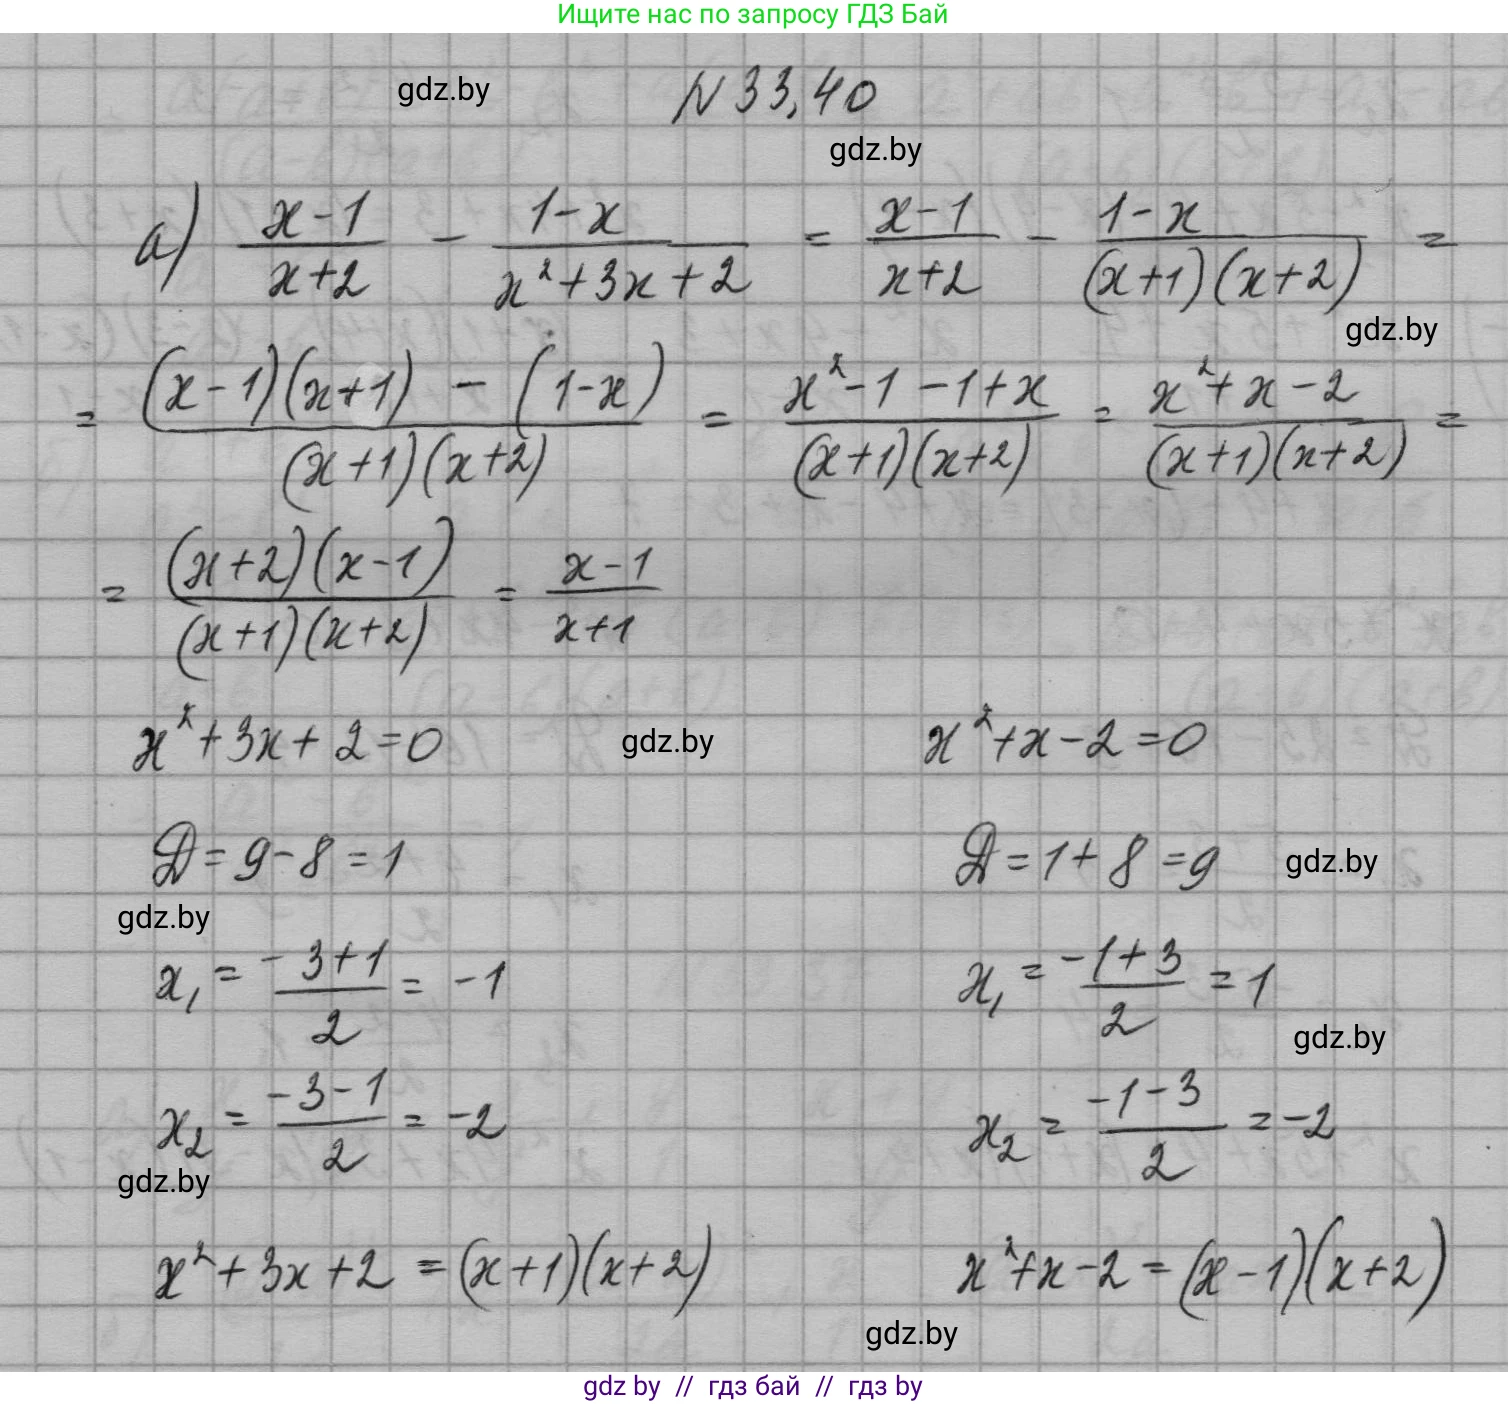 Ищите нас по запросу ГДЗ Бай
gdz.by
N 33,40
gdz.by
а) (x-1)/(x+2) - (1-x)/(x²+3x+2) = (x-1)/(x+2) - (1-x)/((x+1)(x+2)) =
gdz.by
= ((x-1)(x+1) - (1-x))/((x+1)(x+2)) = (x²-1-1+x)/((x+1)(x+2)) = (x²+x-2)/((x+1)(x+2)) =
= ((x+2)(x-1))/((x+1)(x+2)) = (x-1)/(x+1)
x²+3x+2=0 gdz.by x²+x-2=0
Д=9-8=1 Д=1+8=9 gdz.by
gdz.by
x₁ = (-3+1)/2 = -1 x₁ = (-1+3)/2 = 1
gdz.by
x₂ = (-3-1)/2 = -2 x₂ = (-1-3)/2 = -2
gdz.by
x²+3x+2 = (x+1)(x+2) x²+x-2 = (x-1)(x+2)
gdz.by
gdz by // гдз бай // гдз by